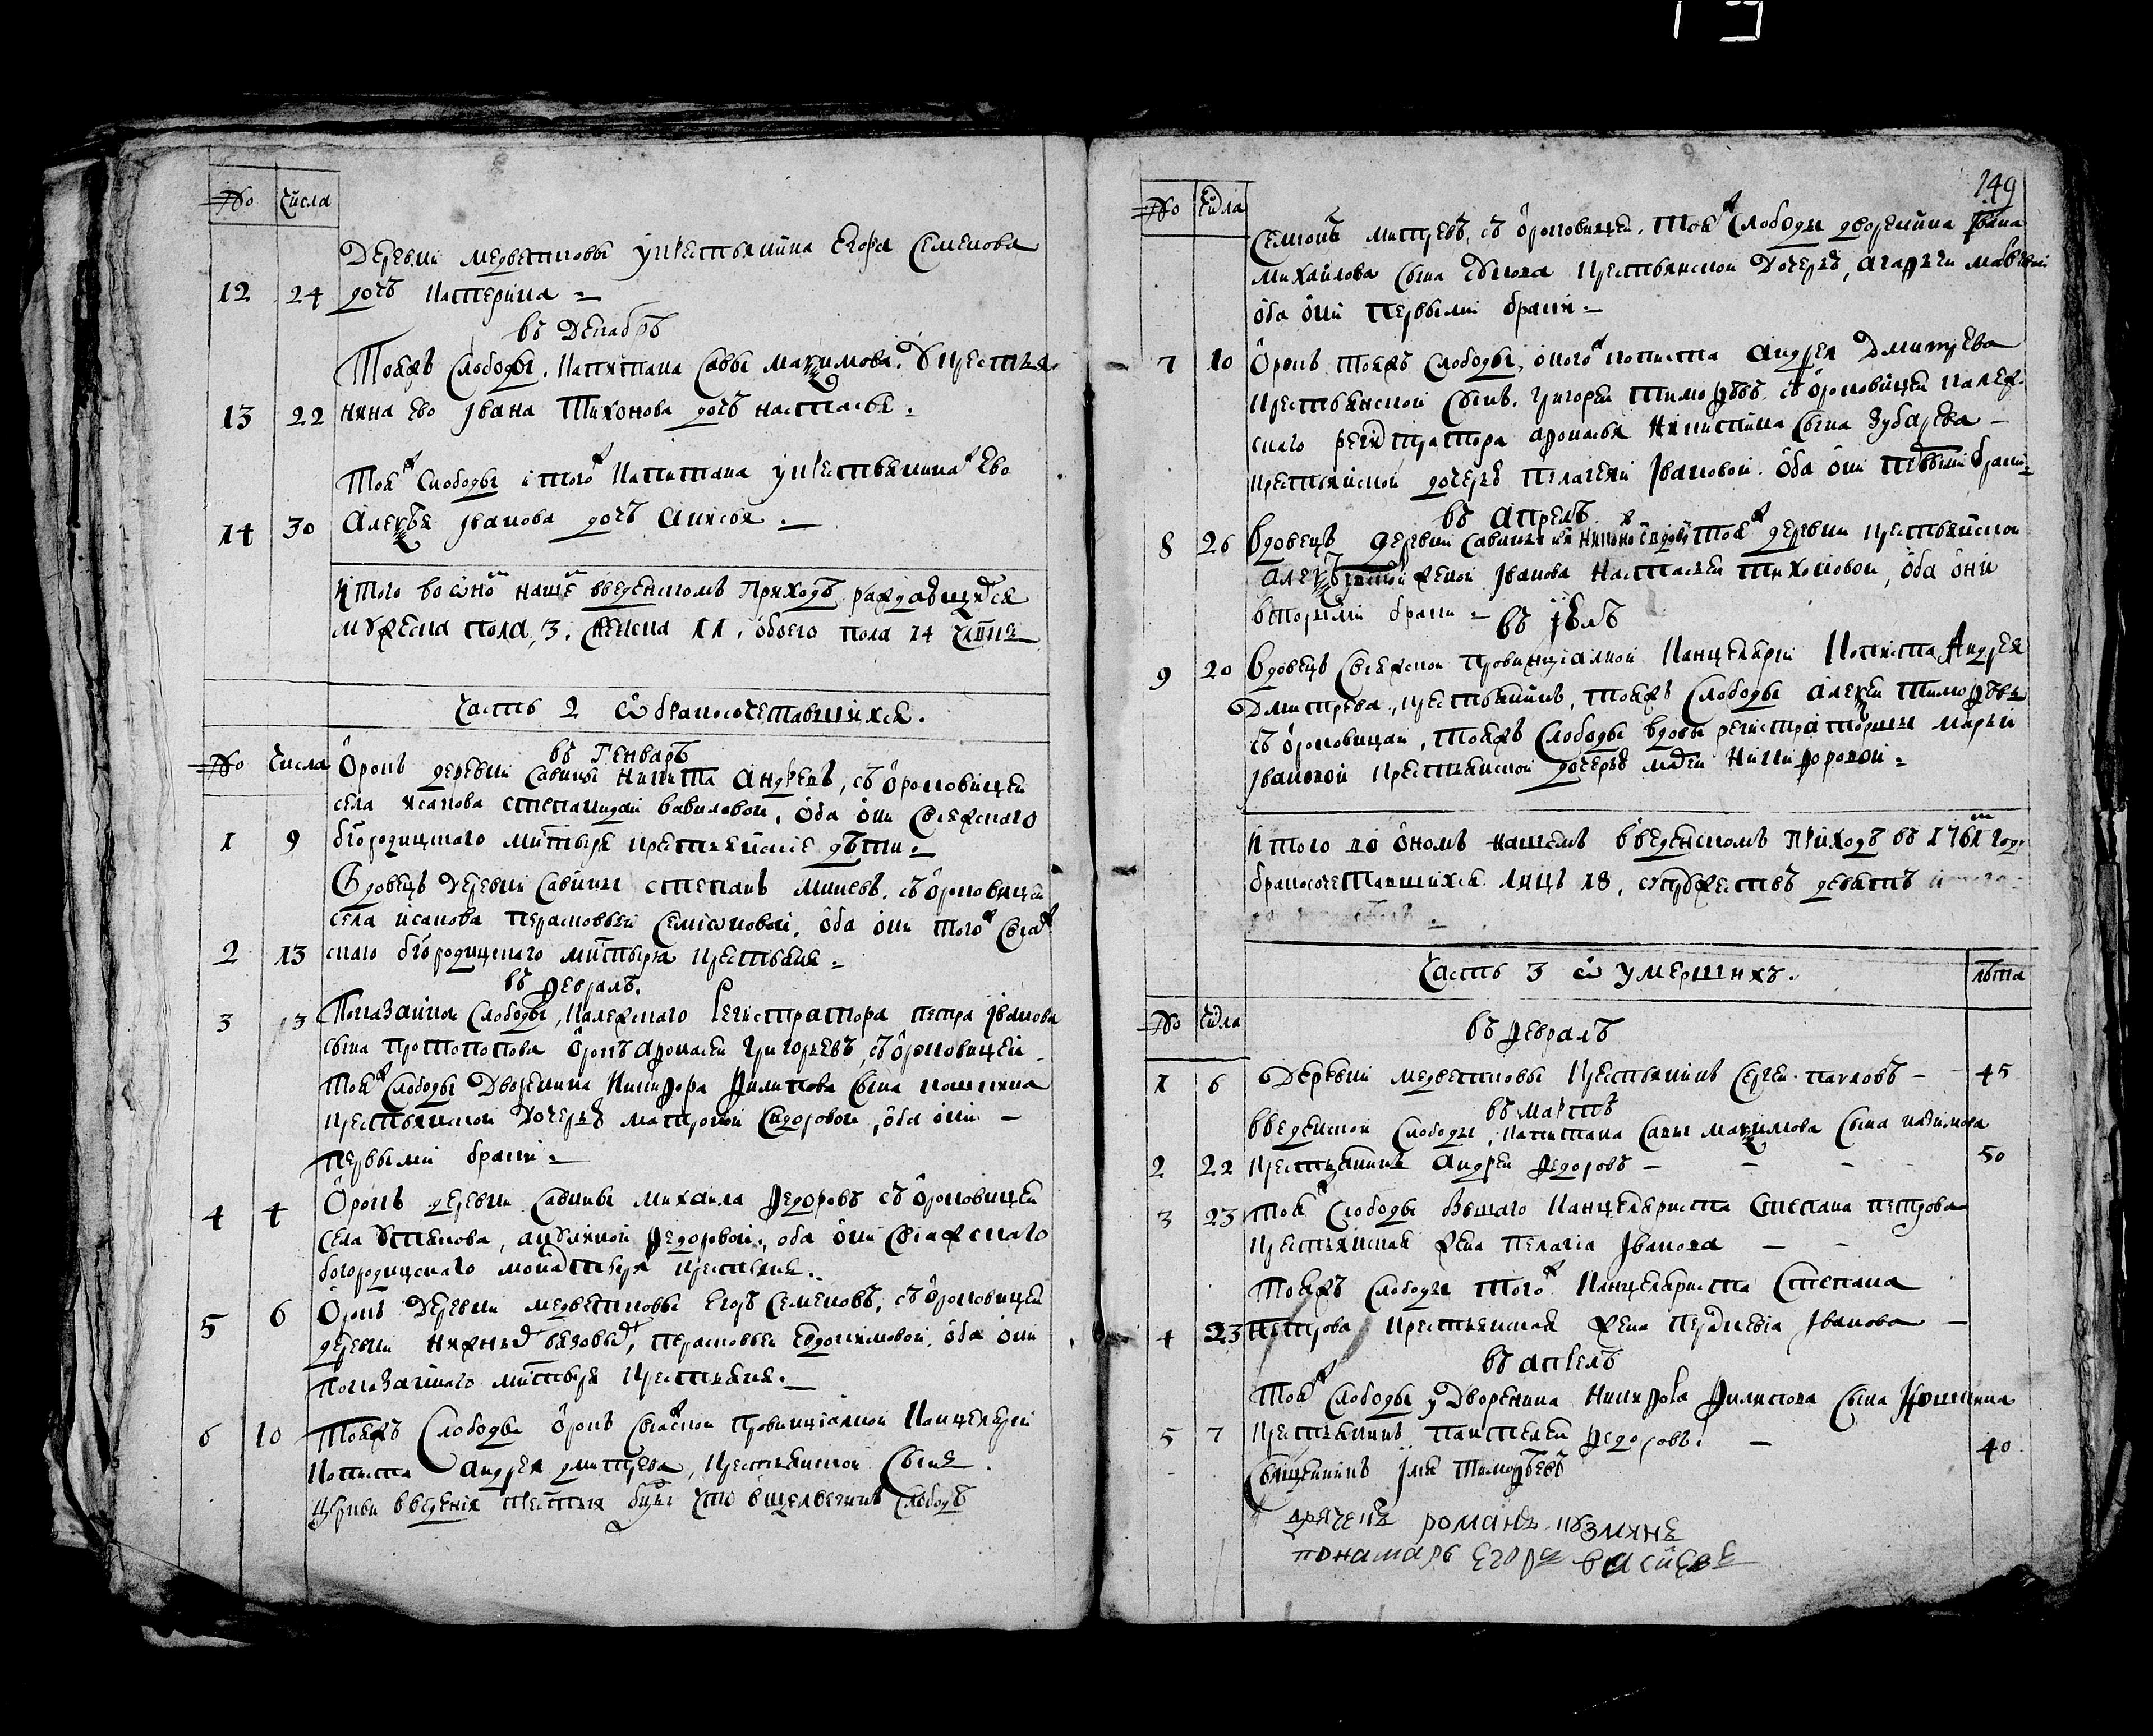 № Числа
Деревни медветковы у крестьянина Егора Семенова
12 24 дочь катерина
въ декабрѣ
Тоежъ слободы, капитана савы максимова, у крестья
13 22 нина ево Iвана Тихонова дочь настасья
Тояж слободы i того ж капитана у крестьянина ж ево
14 30 алексѣя Iванова дочь анисья
итого во оном нашем введенском приходѣ раждавшихся
мужеска пола 3, женска 11, обоего пола 14 члвкъ
Часть 2 ѡ бракосочетавшихся.
въ генварѣ
№ Числа Отрокъ деревни савины никита андреевъ, съ отроковицеи
села исакова степанидаи вавиловои, оба они свіяжскаго
1 9 бгородицкаго мнтыря крестьянские дѣти
Вдовецъ деревни савины степанъ минеевъ, съ отроковицеи
села исакова парасковьеи семіоновои, оба они того ж свіяж
2 13 скаго бгородицкаго мнтыря крестьяне
въ февралѣ.
3 3 Показанной слободы, калежскаго регистратора петра Iванова
сына протопопова отрокъ афонасеи григорьевъ, съ отроковицеи
тояж слободы дворенина никифора филипова сына
крестьянскои дочерью матроной сидоровои, оба они
первымъ бракомъ
4 4 Отрокъ деревни савины михаила федоровъ съ отроковицеи
села, акулиной федоровои, оба они свіяжскаго
богородицкаго монастыря крестьяне.
5 6 Отрокъ деревни медветковы егоръ семеновъ, съ отроковицеи
деревни нижних вязовых, парасковьеи евдокимовои, оба они
показаннаго мнтыря крестьяне.
6 10 тоежъ слободы отрокъ свіяжской правинциалной канцеляріи
кописта андрея дмитрева, крестьянской сынъ
церкви введения престыя бцы что в щелвегинѣ слободѣ
149
№ Числа
семіонъ митревъ, съ отроковицеи, тояж слободы дворенина Iвана
михаилова сына крестьянской дочерью,
оба они первымъ бракомъ
7 10 Отрокъ тоежъ слободы, оного ж кописта андрея дмитрева
крестьянской сынъ григореи тимофѣевъ, съ отроковицеи калеж-
скаго регистратора афонасья никитина сына зубарева
крестьянской дочерью пелагеей Iвановой оба они первымъ бракомъ
въ апрелѣ
8 26 Вдовецъ деревни савины тояж деревни крестьянской
женой Iванова настасьеи тихоновои, оба они
вторымъ бракомъ
въ июлѣ
9 20 Вдовецъ свіяжской правинциалной канцеляріи кописта андрея
дмитрева, крестьянинъ, тоежъ слободы алексѣи тимофѣевъ
съ отроковицаи, тоежъ слободы вдовы регистраторши марьи
Iвановой крестьянской дочерью никифоровой
итого во ономъ нашемъ введенскомъ приходѣ въ 1761м году
бракосочетавшихся лицъ 18, супружествъ девять
Часть 3 ѡ умершихъ. лѣта
№ Числа
въ февралѣ
1 6 Деревни медветковы крестьянинъ сергеи павловъ 45
въ мартѣ
введенской слободы, капитана савы максимова сына
2 22 крестьянинъ андреи федоровъ 50
3 23 тояж слободы бывшаго канцеляриста степана петрова
крестьянская жена пелагіа Iванова
тоежъ слободы того ж канцеляриста степана
4 23 петрова крестьянская жена Iванова
въ апрелѣ
тояж слободы у дворенина никифора филипова сына
5 7 крестьянинъ пантелеи федоровъ 40
Священникъ Iлія тимофѣевъ
дьячекъ романъ кузминъ
понамарь егоръ васильевъ